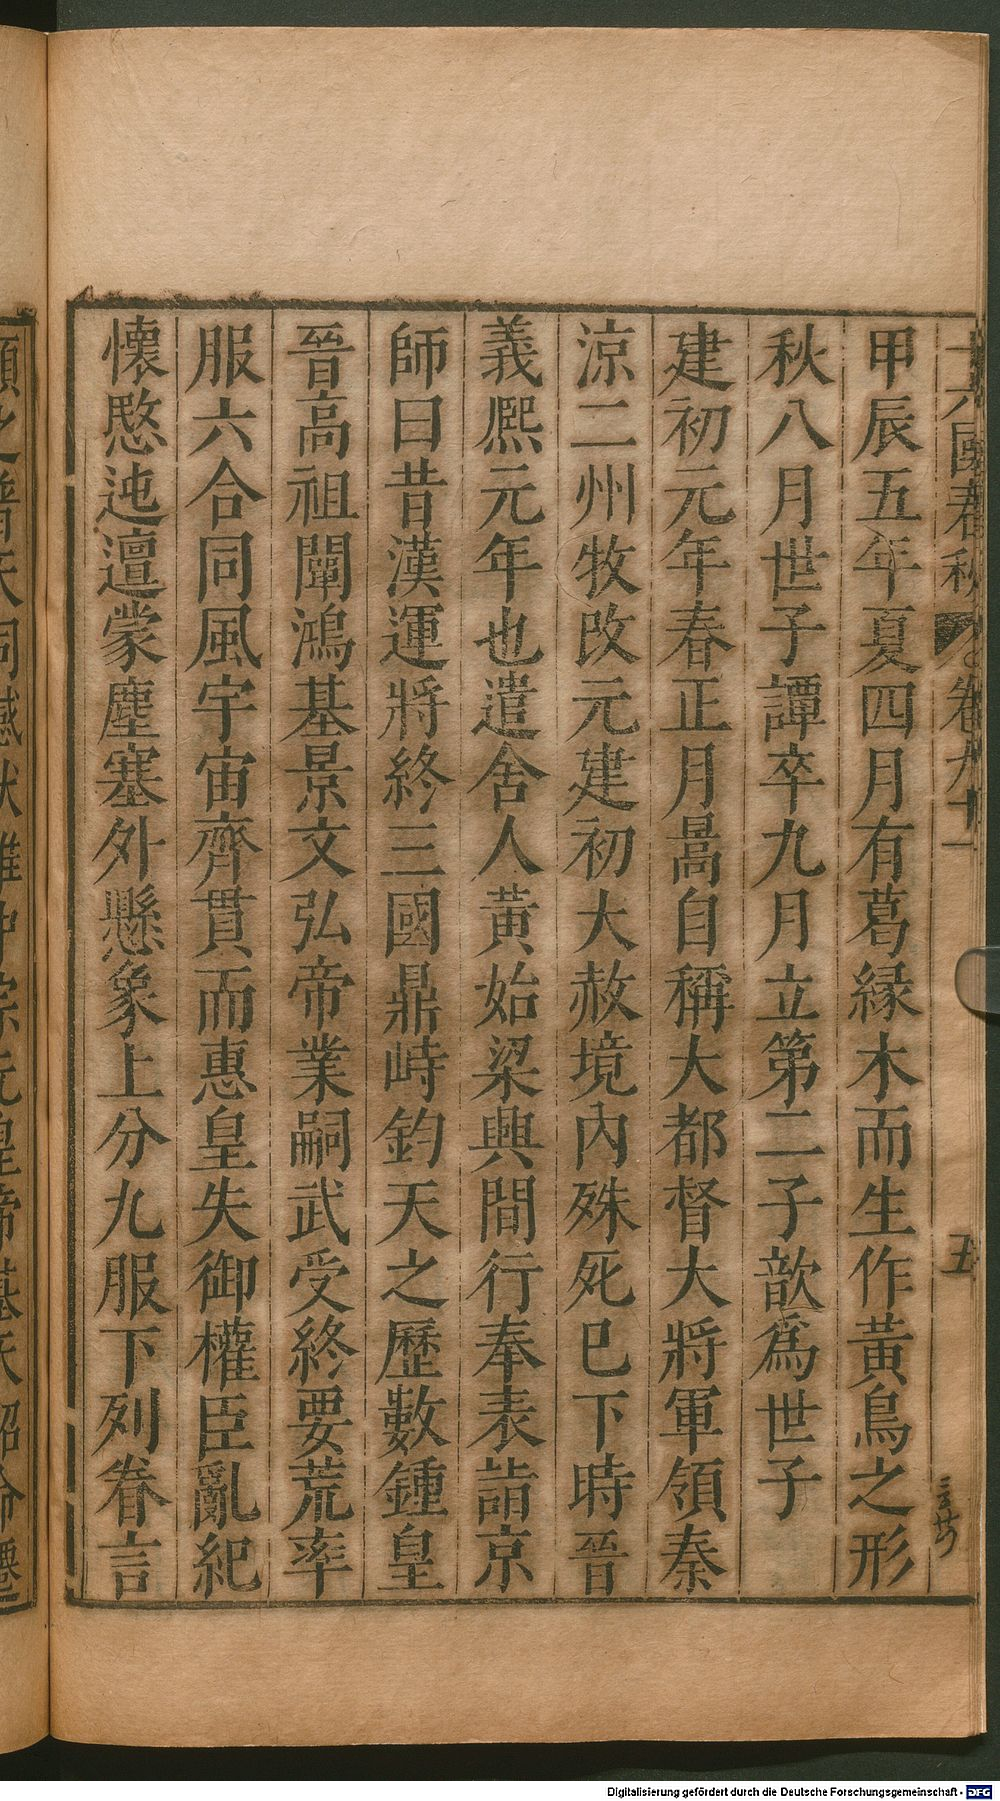 十六國春秋 卷九十一 五
甲辰五年夏四月有葛縁木而生作黃鳥之形
秋八月世子譚卒九月立第二子歆爲世子
建初元年春正月暠自稱大都督大將軍領秦
涼二州牧改元建初大赦境內殊死已下時晉
義熈元年也遣舍人黃始梁興間行奉表詣京
師曰昔漢運將終三國鼎峙鈞天之歷數鍾皇
晉高祖闡鴻基景文弘帝業嗣武受終要荒率
服六合同風宇宙齊貫而惠皇失御權臣亂紀
懷愍迍邅蒙塵塞外懸象上分九服下列眷言
顧之普天同憾伏惟中宗元皇帝基天紹命遷
Digitalisierung gefördert durch die Deutsche Forschungsgemeinschaft - DFG